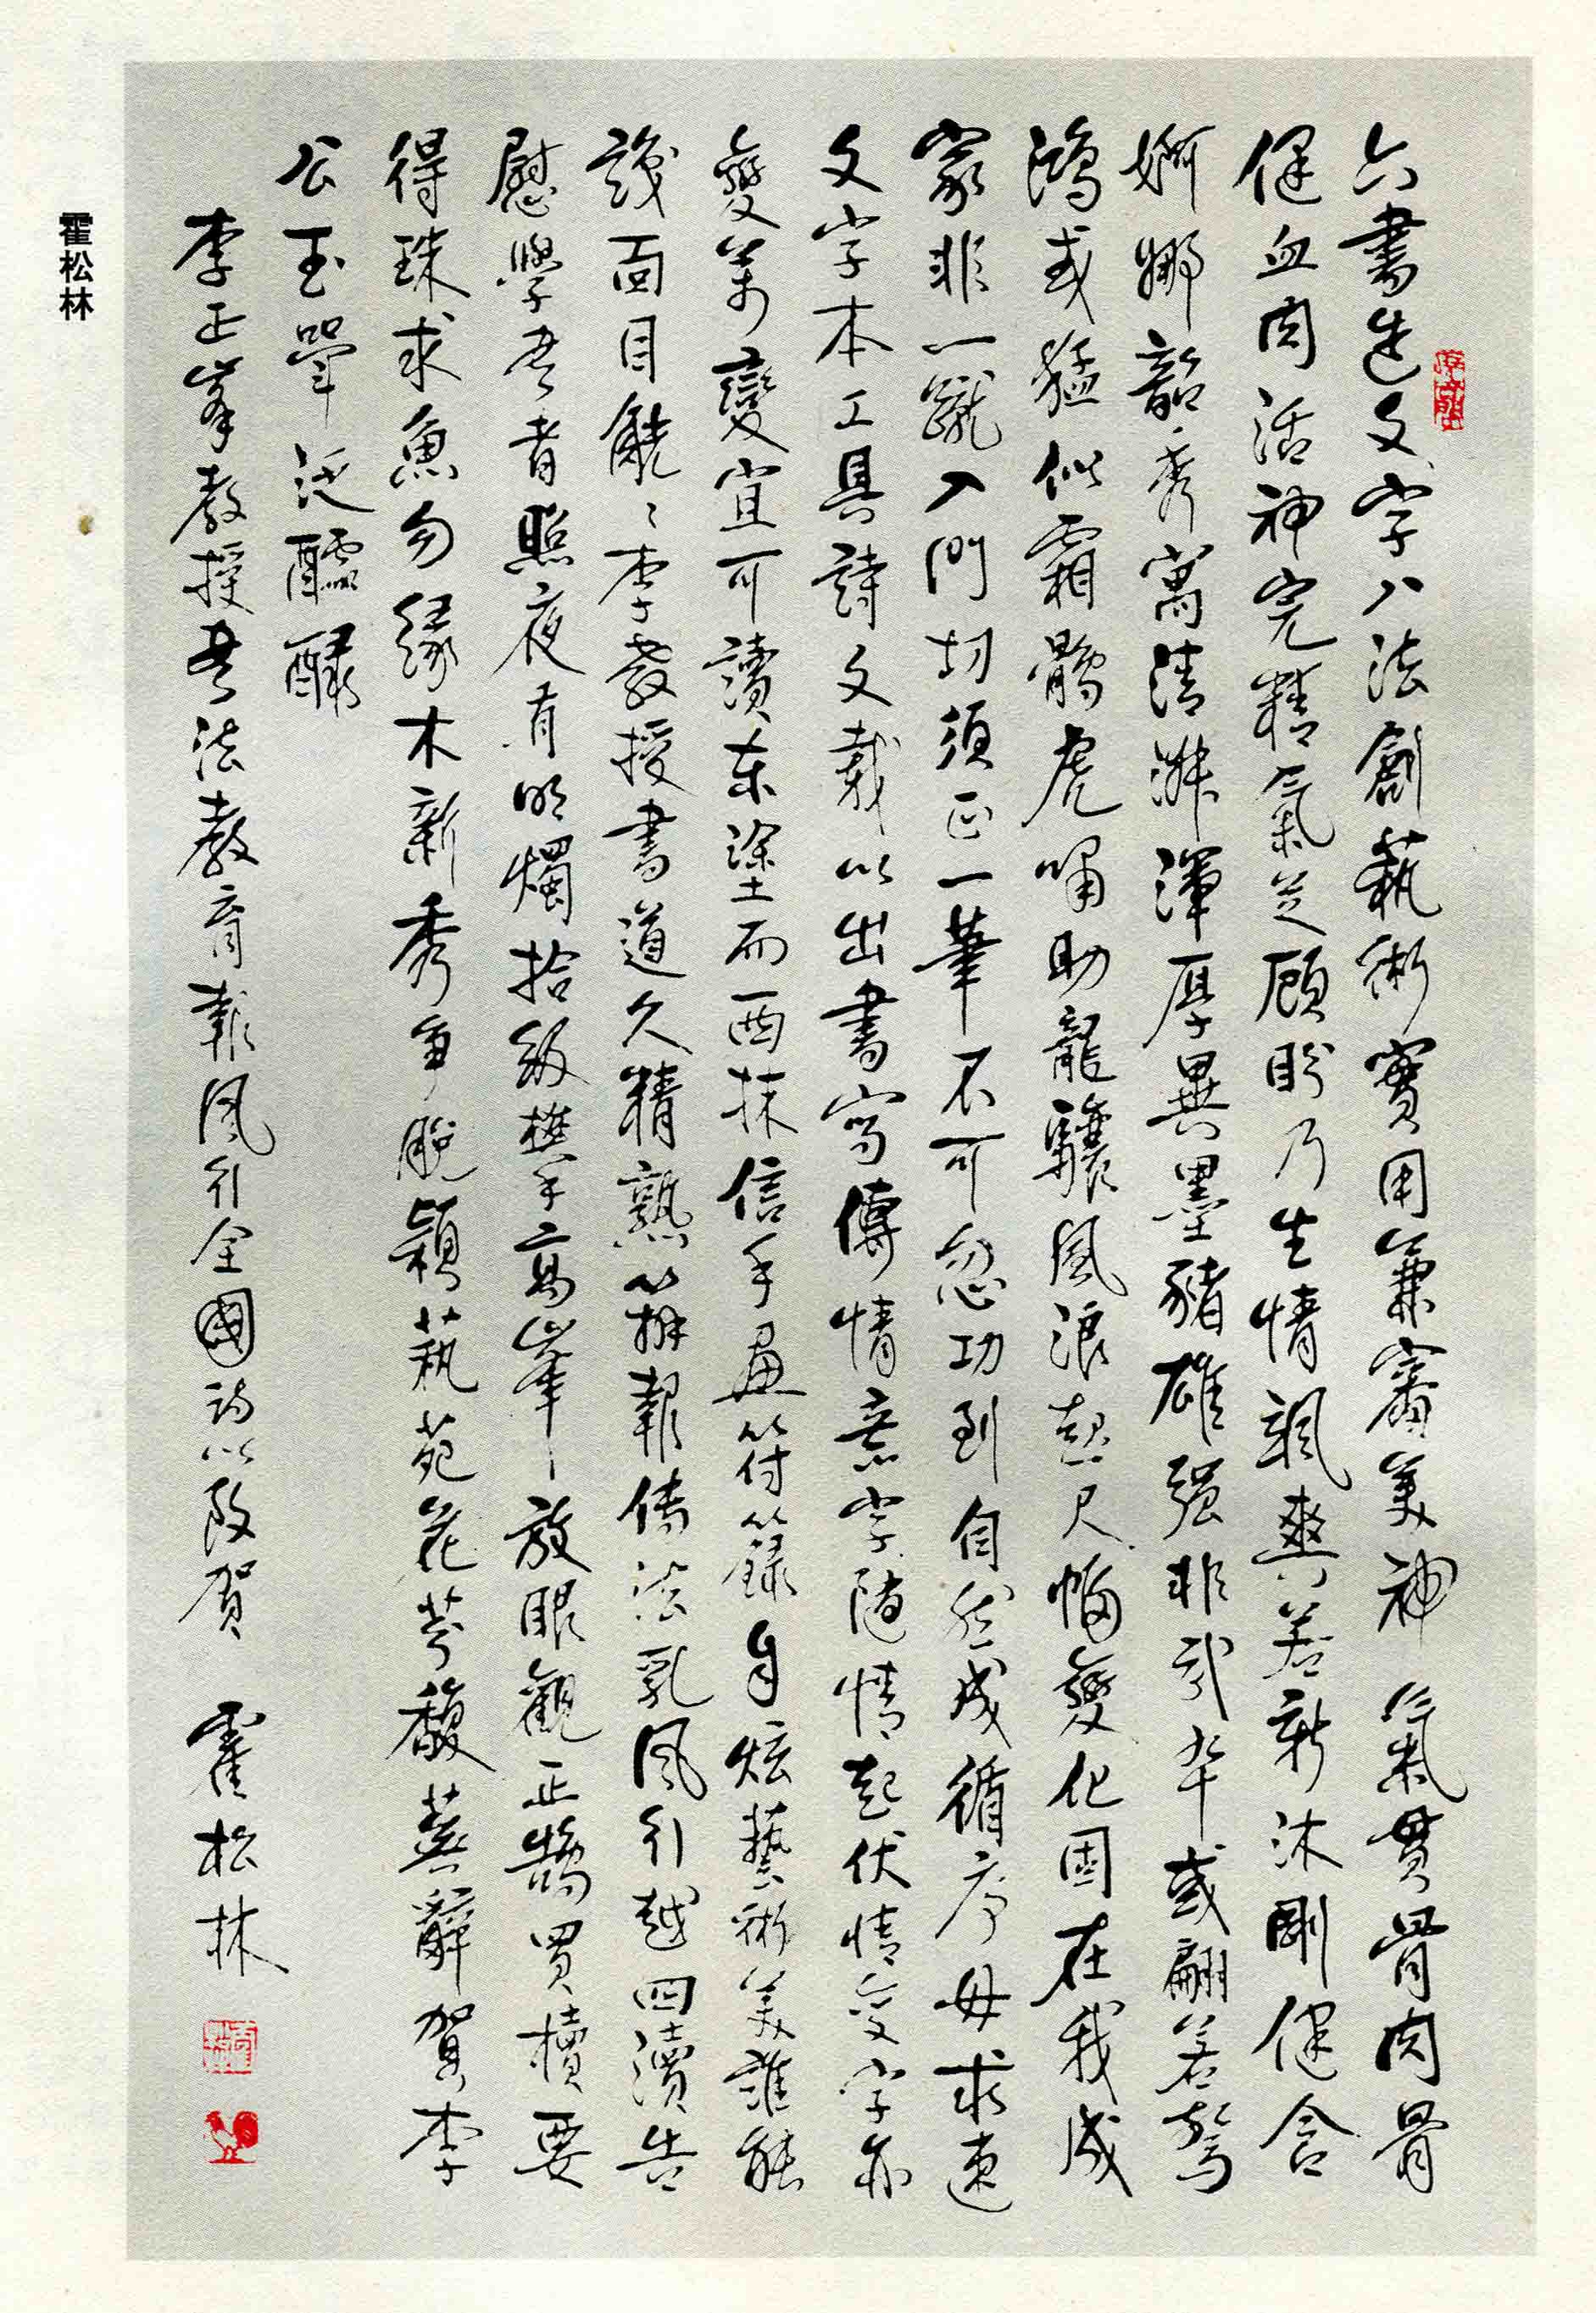 六書造文字八法創藝術實用兼審美神氣貫骨肉骨
健血肉活神完精氣足顧盼乃生情颯爽若新沐剛健含
婀娜韶秀寓清淑渾厚異墨豬雄强非武卒或翩若驚
鴻或猛似霜鶻虎嘯助龍驤風浪起尺幅變化固在我成
家非一蹴入門切須正一筆不可忽功到自然成循序毋求速
文字本工具詩文載以出書寫傳情意字隨情起伏情變字亦
變萬變宜可讀東塗而西抹信手畫符籙自炫藝術美誰能
識面目觥觥李教授書道久精熟辦報傳法乳風行越四瀆告
慰學書者照夜有明燭拾級攀高峰放眼觀正鵠買櫝要
得珠求魚勿緣木新秀爭脫穎藝苑花芬馥蕪辭賀李
公玉斝泛醽醁
李正峯教授書法教育報風行全國詩以致賀 霍松林
霍松林